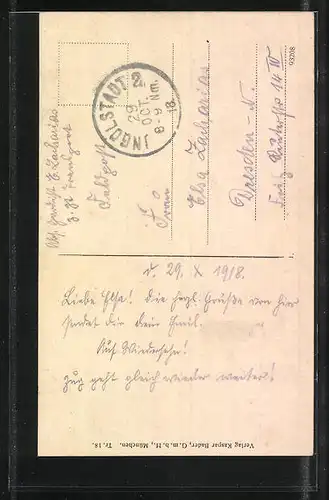 INGOLSTADT 2.
29
OCT.
8-9 Nm.
18.
Feldpost
Frau
Elsa Zacharias
Dresden-N.
14 IV
93208
d. 29. X 1918.
Liebe Elsa! Die herzl. Grüße von hier
sendet dir dein Emil.
Auf Wiedersehn!
Zug geht gleich wieder weiter!
Verlag Kaspar Bader, G. m. b. H., München. Tr. 18.